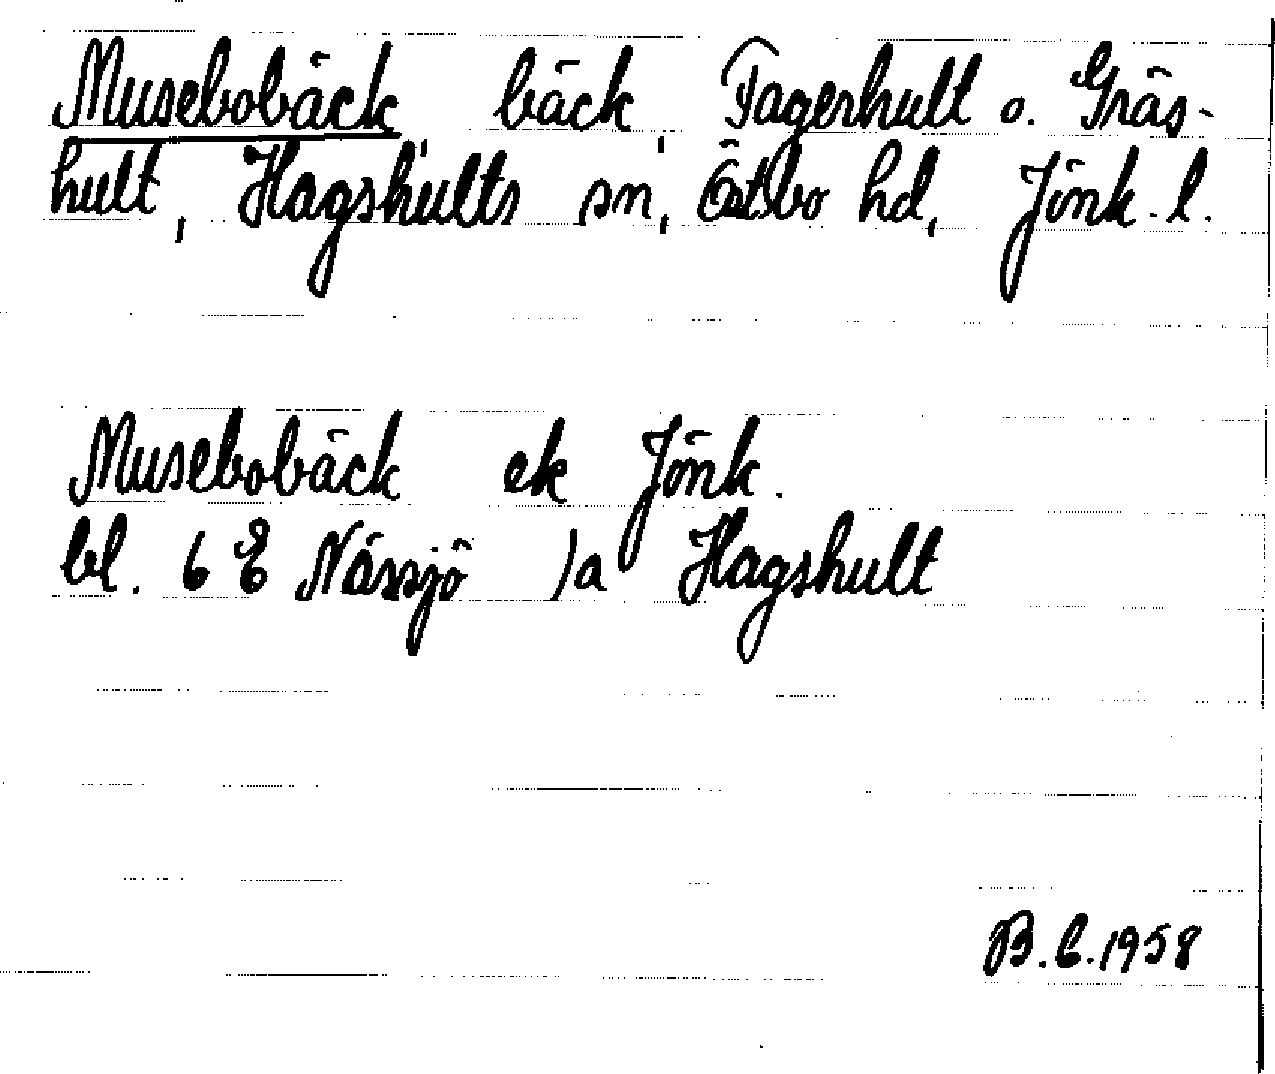 Musebobäck, bäck, Fagerhult o. Gräs-
hult, Hagshults sn, Östbo hd, Jönk. l.
Musebobäck ek Jönk.
bl. 6 E Nässjö )a Hagshult
B.C.1958